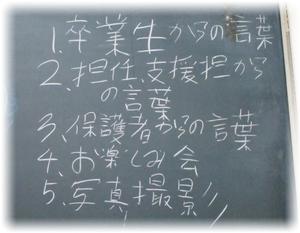 1.卒業生からの言葉
2.担任.支援担から
の言葉
3.保護者からの言葉
4.お楽しみ会
5.写真撮影!!